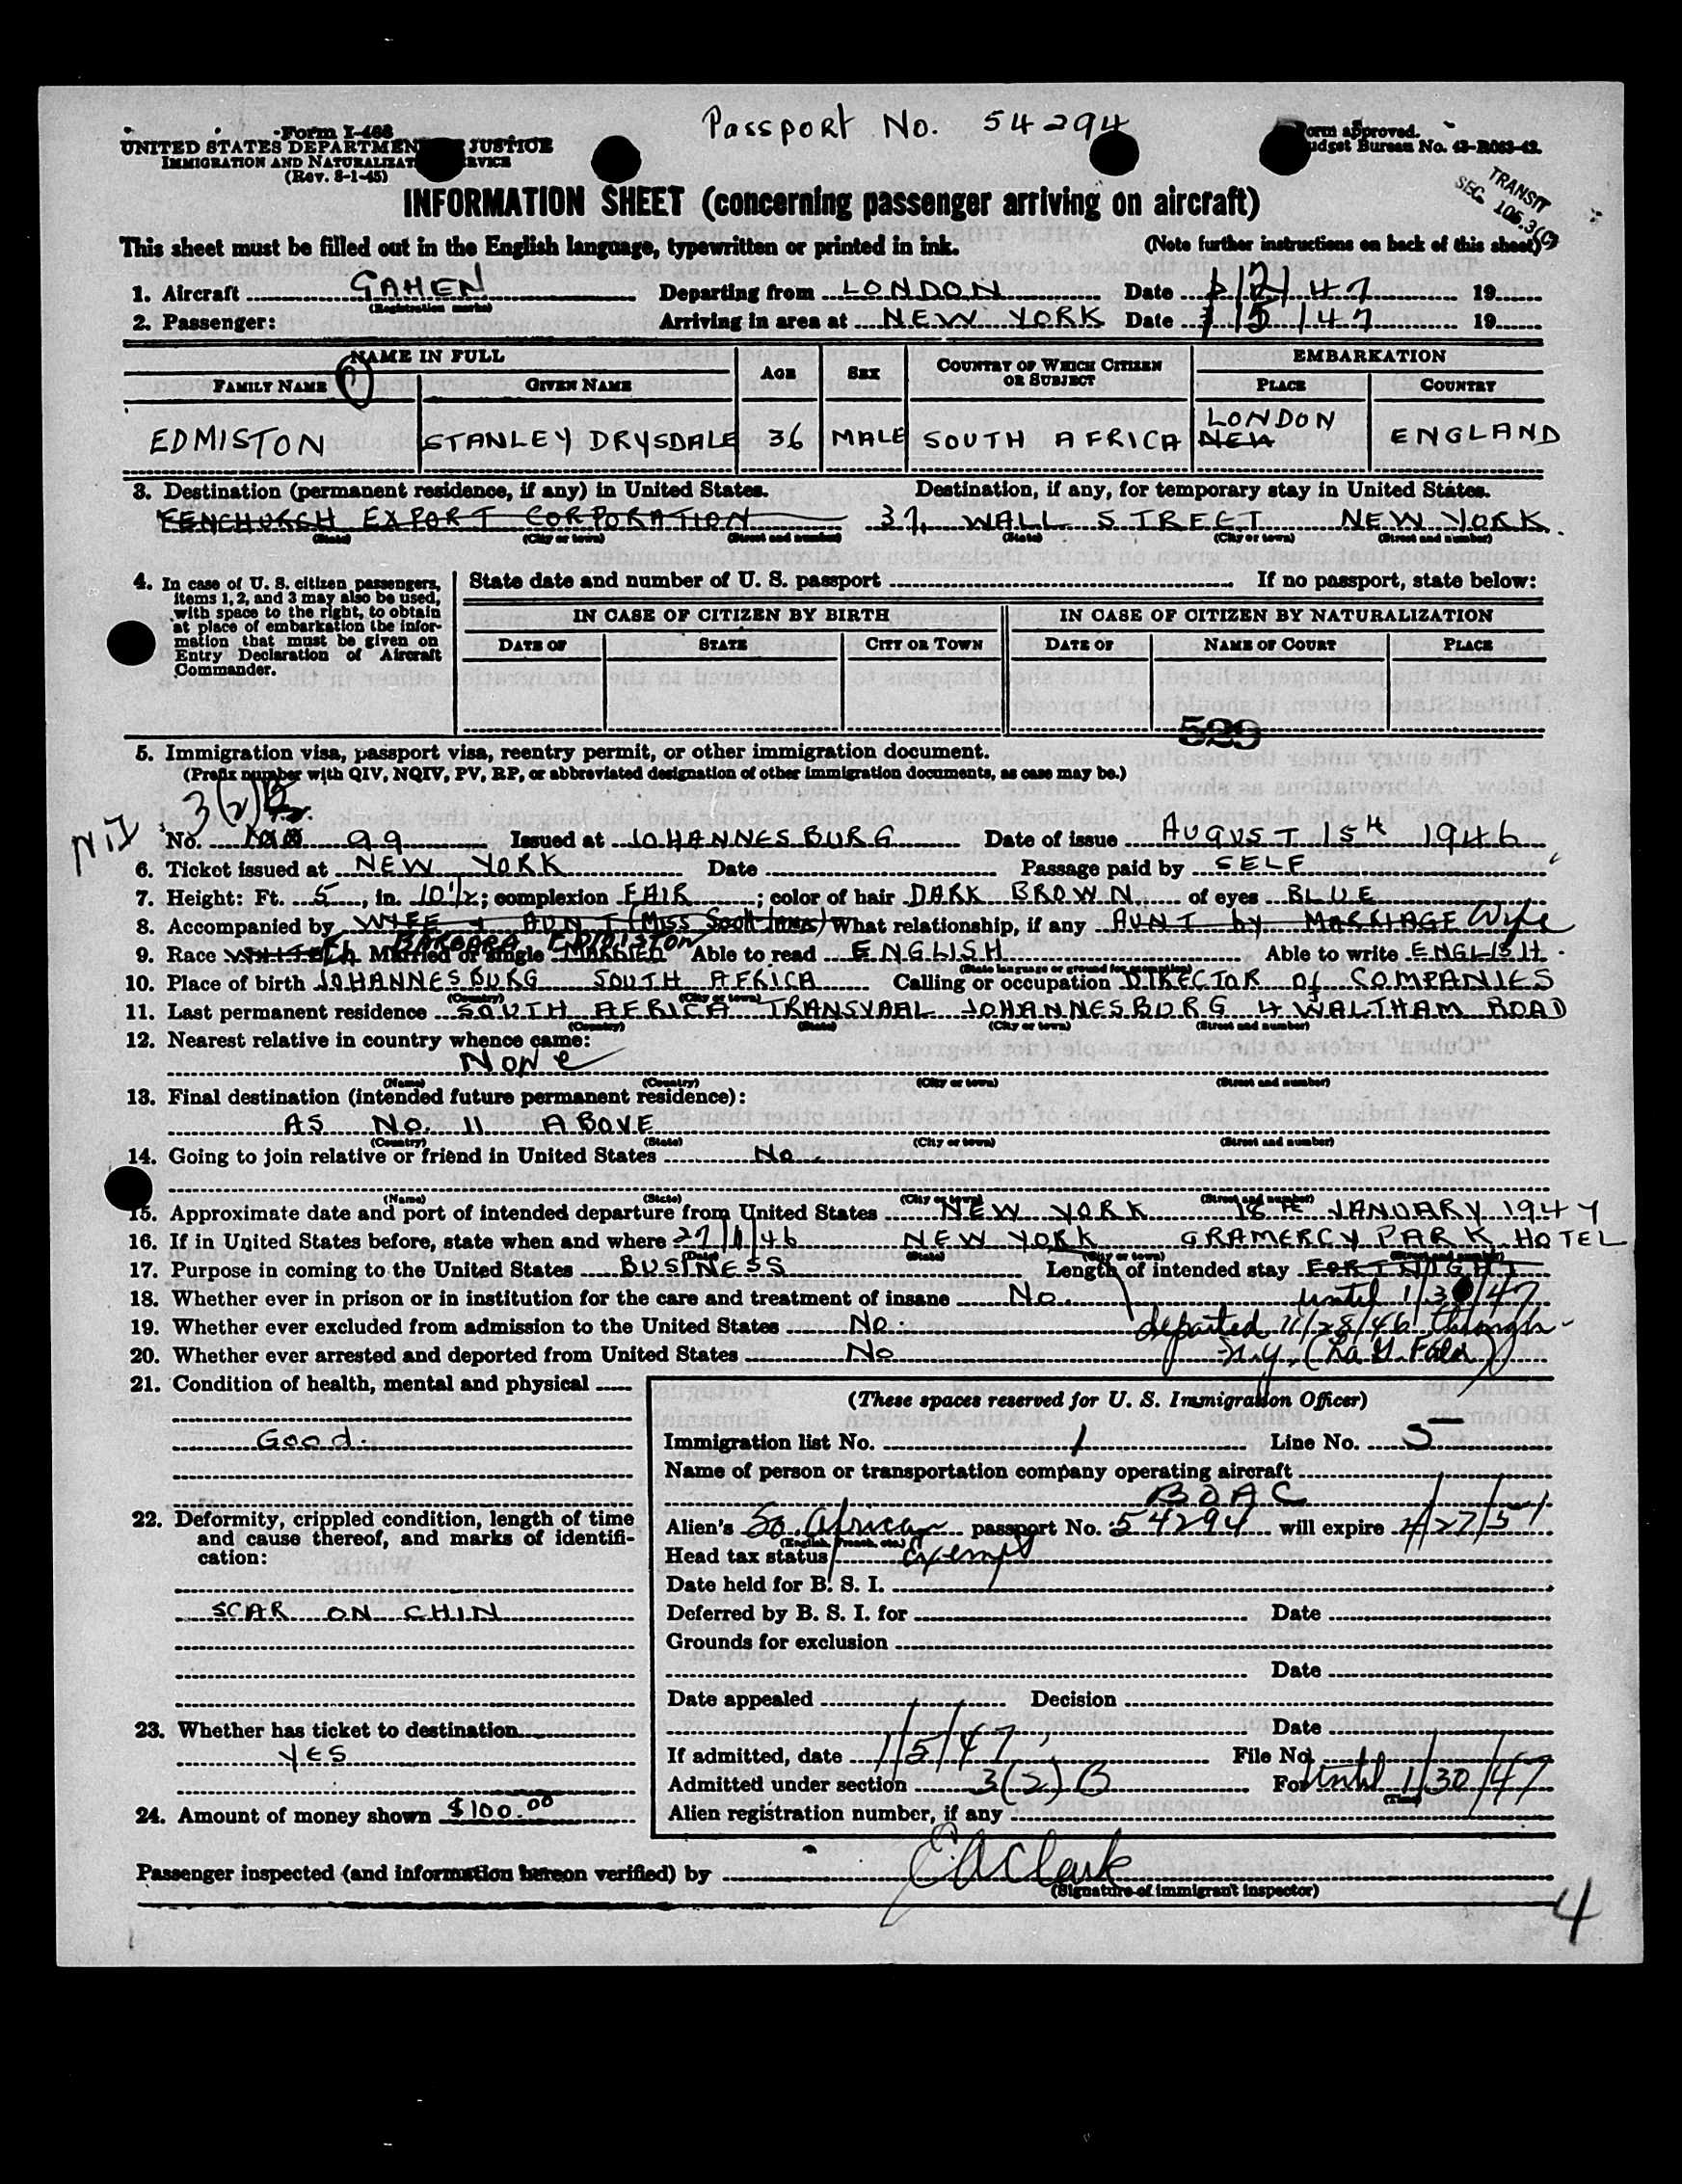 Passport No. 54294
Form I-466
UNITED STATES DEPARTMEN JUSTICE
IMMIGRATION AND NATURALIZAT RVICE
(Rev. 8-1-45)
orm approved.
udget Bureau No. 43-R063-42.
TRANSIT
SEC. 105.3(c)
INFORMATION SHEET (concerning passenger arriving on aircraft)
This sheet must be filled out in the English language, typewritten or printed in ink. (Note further instructions on back of this sheet)
1. Aircraft GAHEN Departing from LONDON Date 1/2/47 19
(Registration marks)
2. Passenger: Arriving in area at NEW YORK Date 1/5/47 19
NAME IN FULL AGE SEX COUNTRY OF WHICH CITIZEN OR SUBJECT EMBARKATION
FAMILY NAME GIVEN NAME PLACE COUNTRY
EDMISTON STANLEY DRYSDALE 36 MALE SOUTH AFRICA LONDON NEW ENGLAND
3. Destination (permanent residence, if any) in United States. Destination, if any, for temporary stay in United States.
FENCHURCH EXPORT CORPORATION 37, WALL STREET NEW YORK.
(State) (City or town) (Street and number) (State) (City or town) (Street and number)
4. In case of U. S. citizen passengers, items 1, 2, and 3 may also be used, with space to the right, to obtain at place of embarkation the information that must be given on Entry Declaration of Aircraft Commander.
State date and number of U. S. passport If no passport, state below:
IN CASE OF CITIZEN BY BIRTH IN CASE OF CITIZEN BY NATURALIZATION
DATE OF STATE CITY OR TOWN DATE OF NAME OF COURT PLACE
529
5. Immigration visa, passport visa, reentry permit, or other immigration document.
(Prefix number with QIV, NQIV, PV, RP, or abbreviated designation of other immigration documents, as case may be.)
3(2)B
NIV
No. 99 Issued at JOHANNESBURG Date of issue AUGUST 15th 1946
6. Ticket issued at NEW YORK Date Passage paid by SELF
7. Height: Ft. 5, in. 10½; complexion FAIR; color of hair DARK BROWN of eyes BLUE
8. Accompanied by WIFE + AUNT (Miss Scott) What relationship, if any AUNT by MARRIAGE Wife
BARBARA EDMISTON
9. Race Married or single MARRIED Able to read ENGLISH Able to write ENGLISH.
(State language or ground for exemption)
10. Place of birth JOHANNESBURG SOUTH AFRICA Calling or occupation DIRECTOR of COMPANIES
(Country) (City or town)
11. Last permanent residence SOUTH AFRICA TRANSVAAL JOHANNESBURG 4 WALTHAM ROAD
(Country) (State) (City or town) (Street and number)
12. Nearest relative in country whence came:
None
(Name) (Country) (City or town) (Street and number)
13. Final destination (intended future permanent residence):
AS No. 11 ABOVE
(Country) (State) (City or town) (Street and number)
14. Going to join relative or friend in United States No.
(Name) (State) (City or town) (Street and number)
15. Approximate date and port of intended departure from United States NEW YORK 18th JANUARY 1947
16. If in United States before, state when and where 27/1/46 NEW YORK GRAMERCY PARK HOTEL
(Date) (State) (City or town) (Street and number)
17. Purpose in coming to the United States BUSINESS Length of intended stay FORTNIGHT
18. Whether ever in prison or in institution for the care and treatment of insane No. until 1/30/47
19. Whether ever excluded from admission to the United States No. departed 11/28/46 through
20. Whether ever arrested and deported from United States No N.Y. (La G. Field)
21. Condition of health, mental and physical
Good.
22. Deformity, crippled condition, length of time and cause thereof, and marks of identification:
SCAR ON CHIN
23. Whether has ticket to destination
YES
24. Amount of money shown $100.00
(These spaces reserved for U. S. Immigration Officer)
Immigration list No. 1 Line No. 5
Name of person or transportation company operating aircraft
BOAC
Alien's So. African passport No. 54294 will expire 4/27/51
(English, French, etc.)
Head tax status exempt
Date held for B. S. I.
Deferred by B. S. I. for Date
Grounds for exclusion
Date
Date appealed Decision
Date
If admitted, date 1/5/47 File No.
Admitted under section 3(2)B For Until 1/30/47
(Time)
Alien registration number, if any
Passenger inspected (and information hereon verified) by E A Clark
(Signature of immigrant inspector)
4